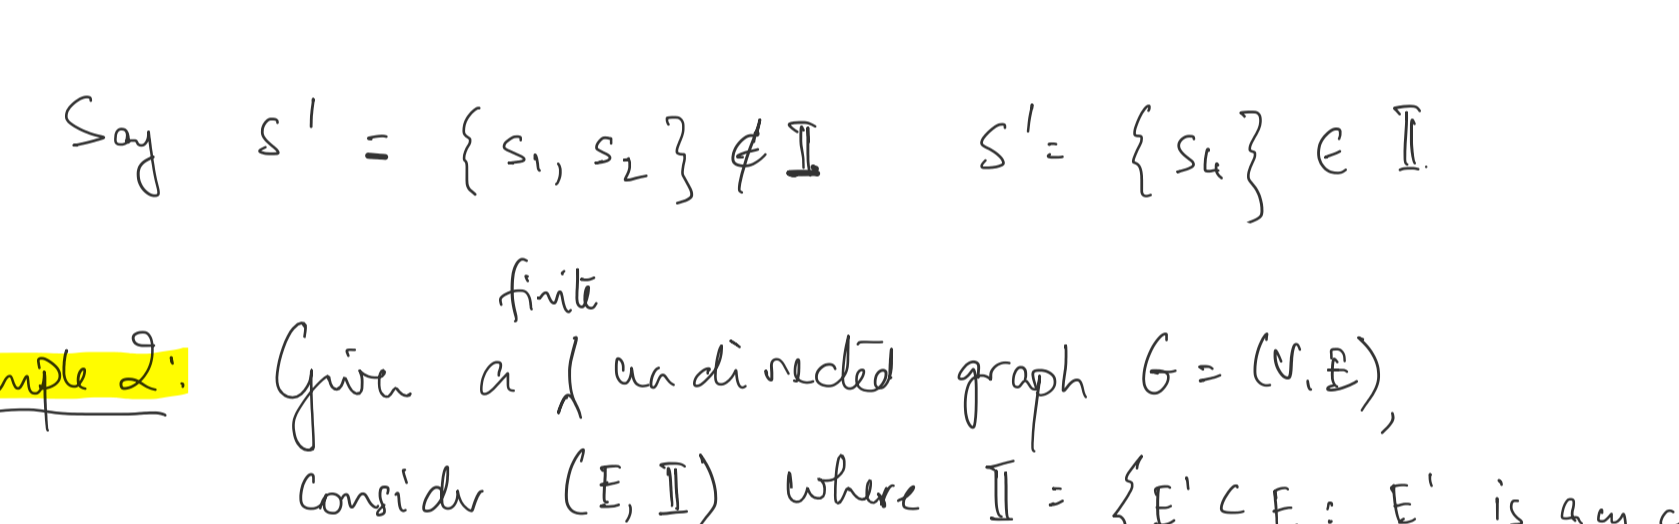 Say S' = {s₁, s₂} ∉ 𝕀 S' = {s₄} ∈ 𝕀.
finite
mple 2: Given a undirected graph G = (V, E),
Consider (E, 𝕀) where 𝕀 = {E' ⊂ E : E' is a